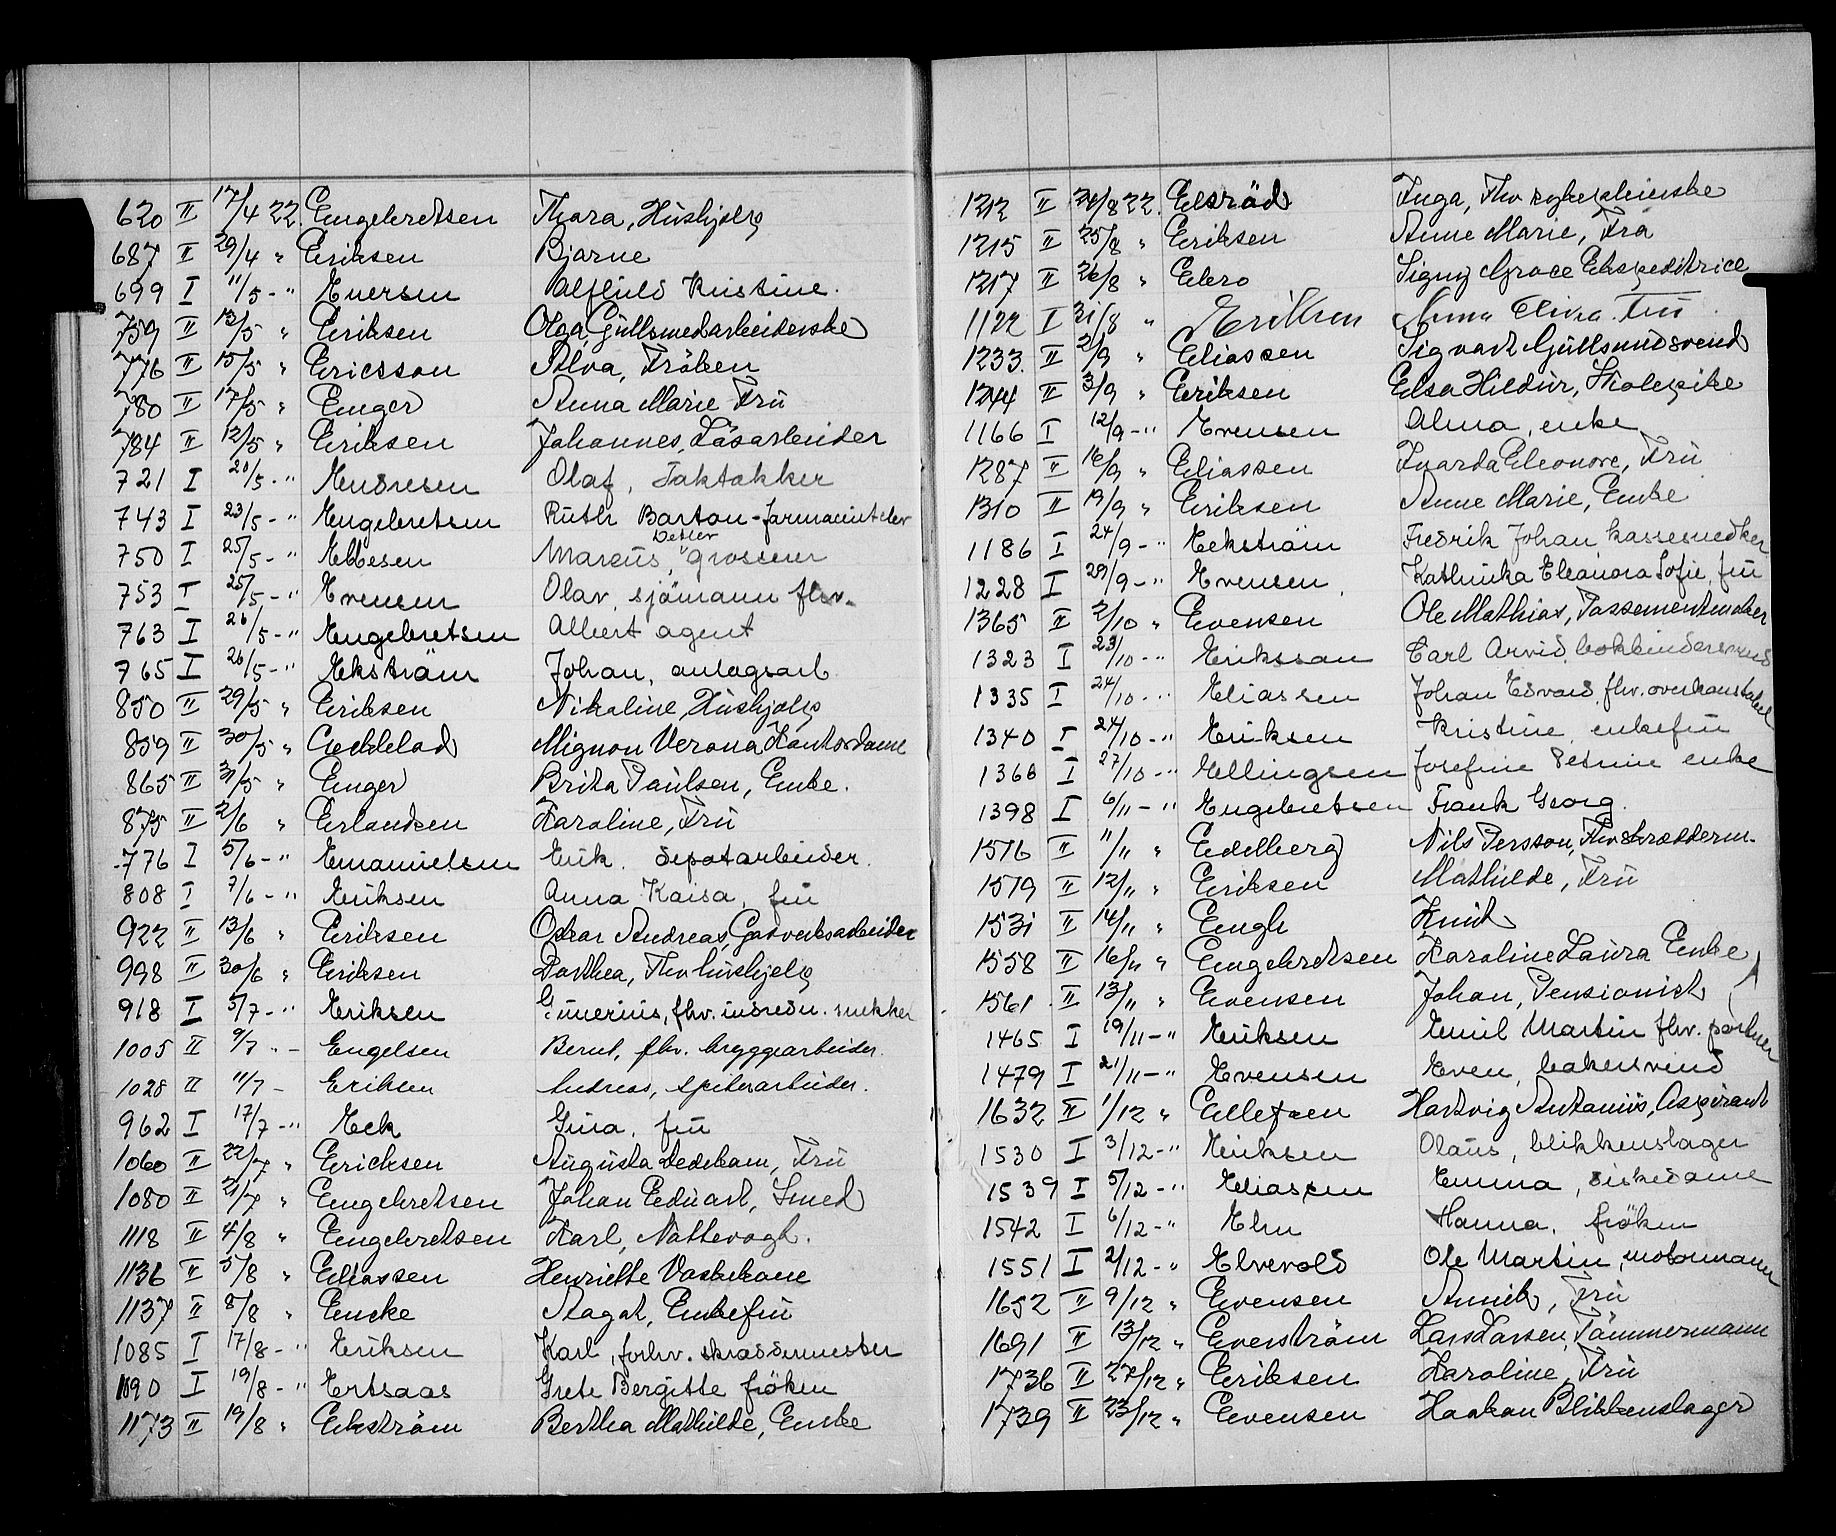 620 II 17/4 22. Engebretsen Thora, Hushjelp
687 II 29/4 " Eriksen Bjarne
699 I 11/5 - " Eversen Alfhild Kristine.
759 II 13/5 " Eriksen Olga, Gullsmedarbeiderske
776 II 15/5 " Ericsson Alva, Fröken
780 II 17/5 " Enger Anna Marie Fru
784 II 12/5 " Eriksen Johannes, Lösarbeider
721 I 20/5 - " Endresen Olaf, Taktekker
743 I 23/5 - " Engebretsen Ruth Barton - farmaceutelev
750 I 25/5 - " Ebbesen Marcus Detlev, grosserer
753 I 25/5 - " Evensen Olav, sjömann fhv.
763 I 26/5 - " Engebretsen Albert agent
765 I 26/5 - " Ekström Johan, anlegsarb.
850 II 29/5 " Eriksen Nikoline, Hushjelp
859 II 30/5 " Eckblad Mignon Verona Kontordame
865 II 31/5 " Enger Brita Paulsen, Enke.
875 II 2/6 " Erlandsen Karoline, Fru
776 I 5/6 - " Emanuelsen Erik. depotarbeider.
808 I 7/6 - " Eriksen Anna Kaisa, fru
922 II 13/6 " Eriksen Oskar Andreas, Gasverksarbeider
998 II 30/6 " Eriksen Dorthea, Fhv hushjelp
918 I 5/7 - " Eriksen Gunerius, fhv. snekker
1005 II 9/7 " - Engelsen Bernt, fhv. bryggearbeider.
1028 II 11/7 - Eriksen Andreas, spikerarbeider.
962 I 17/7 - " Eck Gina, fru
1060 II 22/7 " Ericksen Augusta Dedekam, Fru
1080 II 21/7 " Engebretsen Johan Edvart, Smed
1118 II 4/8 " Engebretsen Karl, Nattevagt.
1136 II 5/8 " Eliassen Henriette Vaskekone
1137 II 8/8 " Encke Aagot, Enkefru
1085 I 17/8 - " Eriksen Karl, forhv. skræddermester
1090 I 19/8 - " Ertsaas Grete Bergitte fröken
1173 II 19/8 " Ekström Bertha Mathilde, Enke
1212 II 24/8 22. Elsräd Inga, Fhv sykepleierske
1215 II 25/8 " Eriksen Anne Marie, Fra
1217 II 26/8 " Ebro Signy Grace Ekspeditrice
1122 I 31/8 " Eriksen Anna Elisa. Fru
1233. II 2/9 " Eliassen Sigvart Gullsmedsvend
1244 II 3/9 " Eriksen Elsa Hildur, Skolepike
1166 I 12/9 - " Evensen Alma, enke
1287 II 16/9 " Eliassen Inarda Eleonore, Fru
1310 II 19/9 " Eriksen Anne Marie, Enke
1186 I 24/9 - " Eckström Fredrik Johan kassesnedker
1228 I 29/9 - " Evensen Kathinka Eleanora Sofie, fru
1365 II 2/10 " Evensen Ole Mathias, Possementmaker
1323 I 23/10 - " Eriksson Carl Arvid, bokbindersvend
1335 I 24/10 - " Eliassen Johan Edvard, fhv. overkonstabel
1340 I 24/10 - " Eriksen Kristine, enkefru
1366 I 27/10 - " Ellingsen Josefine Petrine enke
1398 I 6/11 - " Engebretsen Frank Georg.
1516 II 11/11 " Edelberg Nils Persson, Fhv skrædderm.
1519 II 12/11 " Eriksen Mathilde, Fru
1531 II 14/11 " Engh Knut
1558 II 16/11 " Engebretsen Karoline Laura Enke
1561 II 13/11 " Evensen Johan, Pensionist
1465 I 19/11 - " Eriksen Emil Martin fhv. portner
1479 I 21/11 - " Evensen Even, bakersvend
1632 II 1/12 " Ellefsen Hartvig Antonius, Aspirant
1530 I 3/12 - " Eriksen Olaus, blikkenslager
1539 I 5/12 - " Eliassen Emma, diskedame
1542 I 6/12 - " Elm Hanna, fröken
1551 I 2/12 - " Elvevold Ole Martin, motormann
1652 II 9/12 " Evensen Annie, Fru
1691 II 13/12 " Everström Lars Larsen, Tömmermann
1736 II 27/12 " Eriksen Karoline, Fru
1739 II 23/12 " Evensen Haakon Blikkenslager